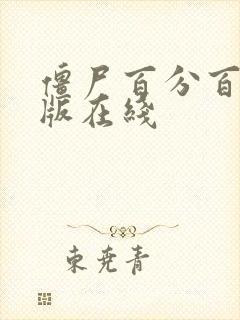 僵尸百分百
版在线
束尭青